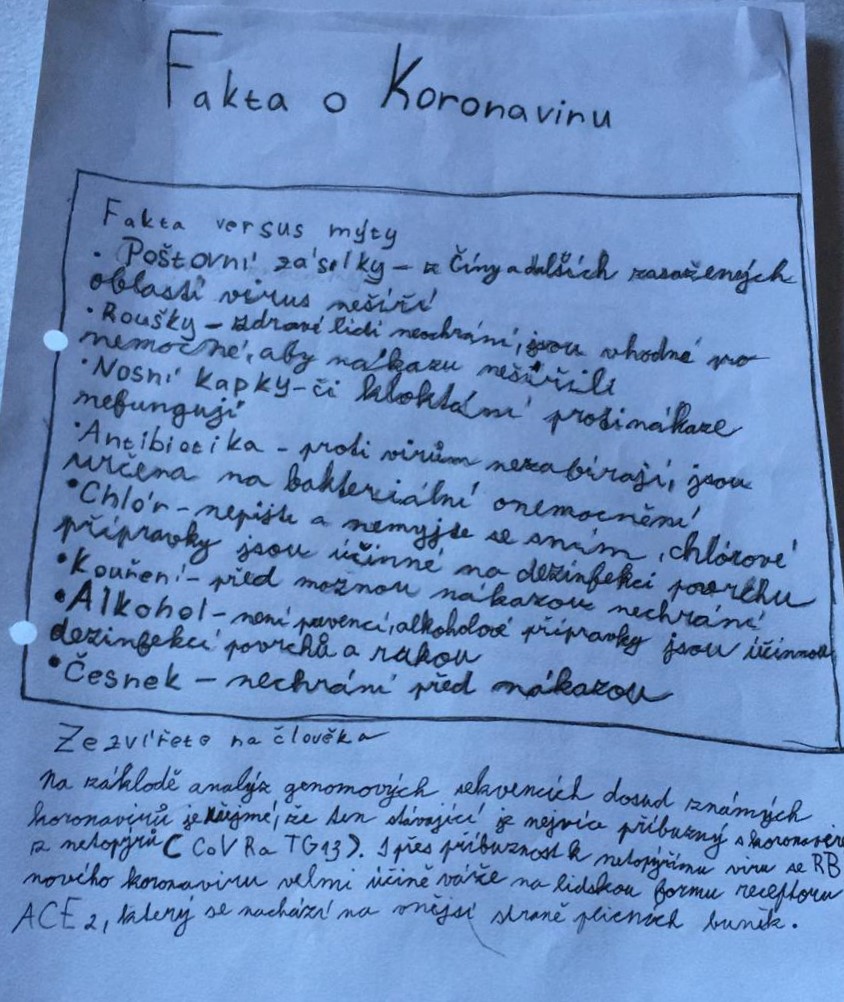 Fakta o Koronaviru
Fakta versus mýty
• Poštovní zásilky – z Číny a dalších zasažených
oblastí virus nešíří
• Roušky – zdravé lidi neochrání, jsou vhodné pro
nemocné, aby nákazu nešířili
• Nosní kapky – či kloktání proti nákaze
nefungují
• Antibiotika – proti virům nezabírají, jsou
určena na bakteriální onemocnění
• Chlór – nepijte a nemyjte se sním, chlórové
přípravky jsou účinné na dezinfekci povrchu
• Kouření – před možnou nákazou nechrání
• Alkohol – není prevencí, alkoholové přípravky jsou účinnou
dezinfekcí povrchů a rukou
• Česnek – nechrání před nákazou
Ze zvířete na člověka
Na základě analýz genomových sekvencích dosud známých
koronavirů je zřejmé, že ten stávající je nejvíce příbuzný s koronavirem
z netopýrů (CoV Ra TG13). I přes příbuznost k netopýřímu viru se RB
nového koronaviru velmi účině váže na lidskou formu receptoru
ACE2, který se nachází na vnější straně plicních buněk.